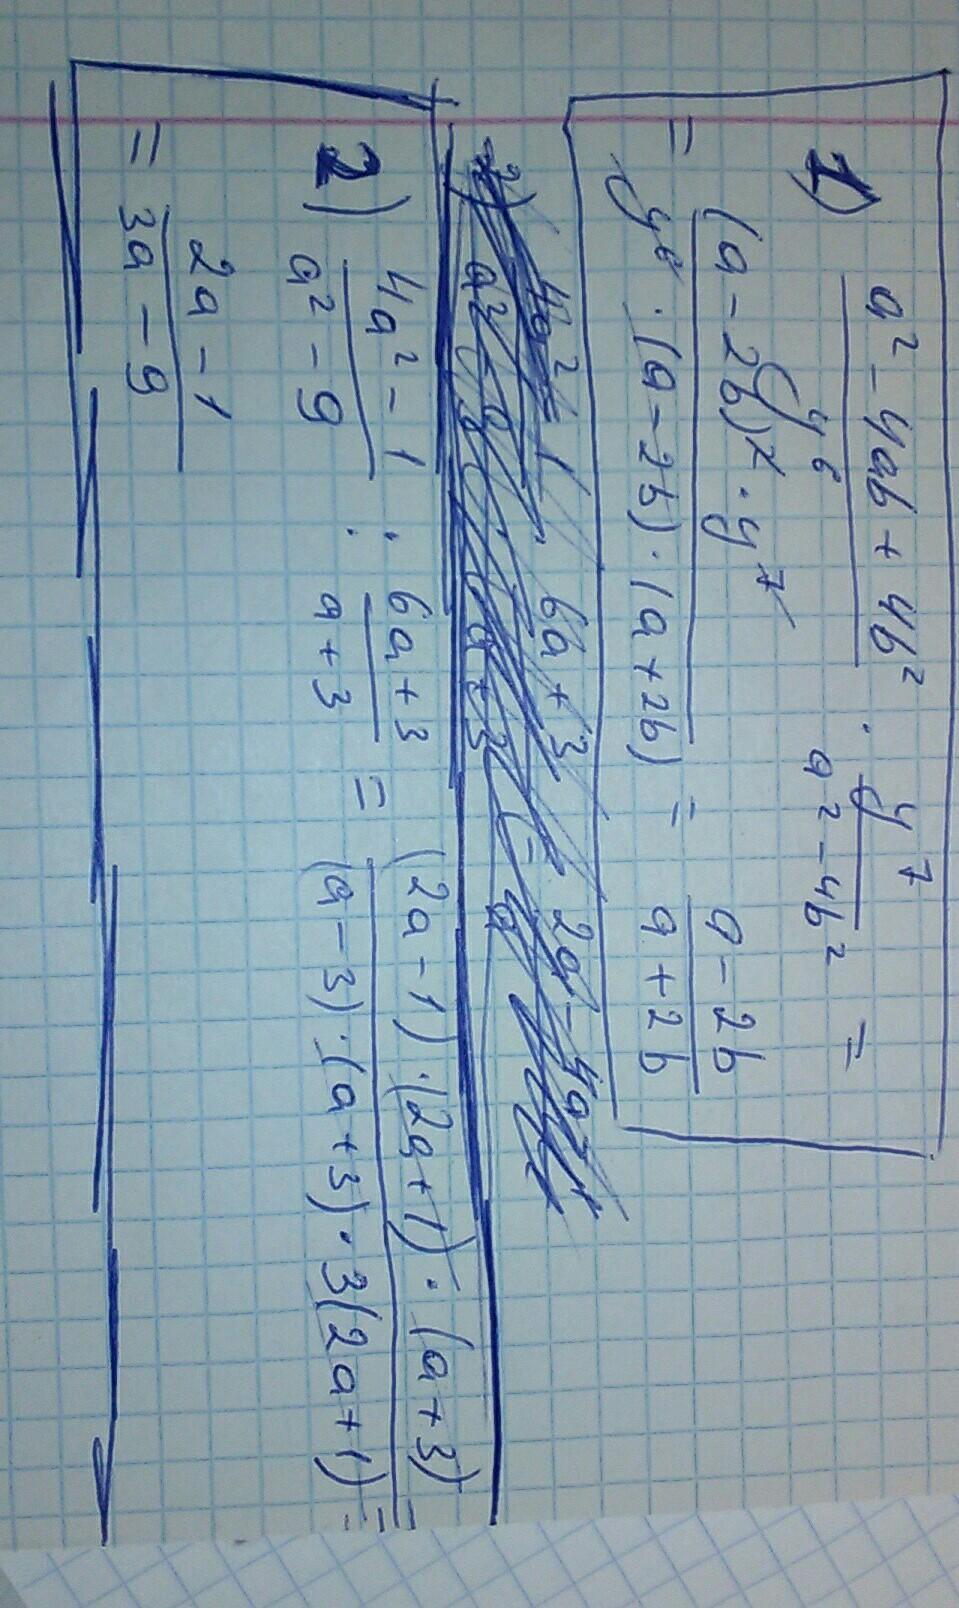 1) a² - 4ab + 4b² / y⁶ · y⁷ / a² - 4b² =
= (a - 2b)² · y⁷ / y⁶ · (a - 2b) · (a + 2b) = a - 2b / a + 2b
2) 4a² - 1 / a² - 9 : 6a + 3 / a + 3 = (2a - 1) · (2a + 1) · (a + 3) / (a - 3) · (a + 3) · 3(2a + 1) =
= 2a - 1 / 3a - 9